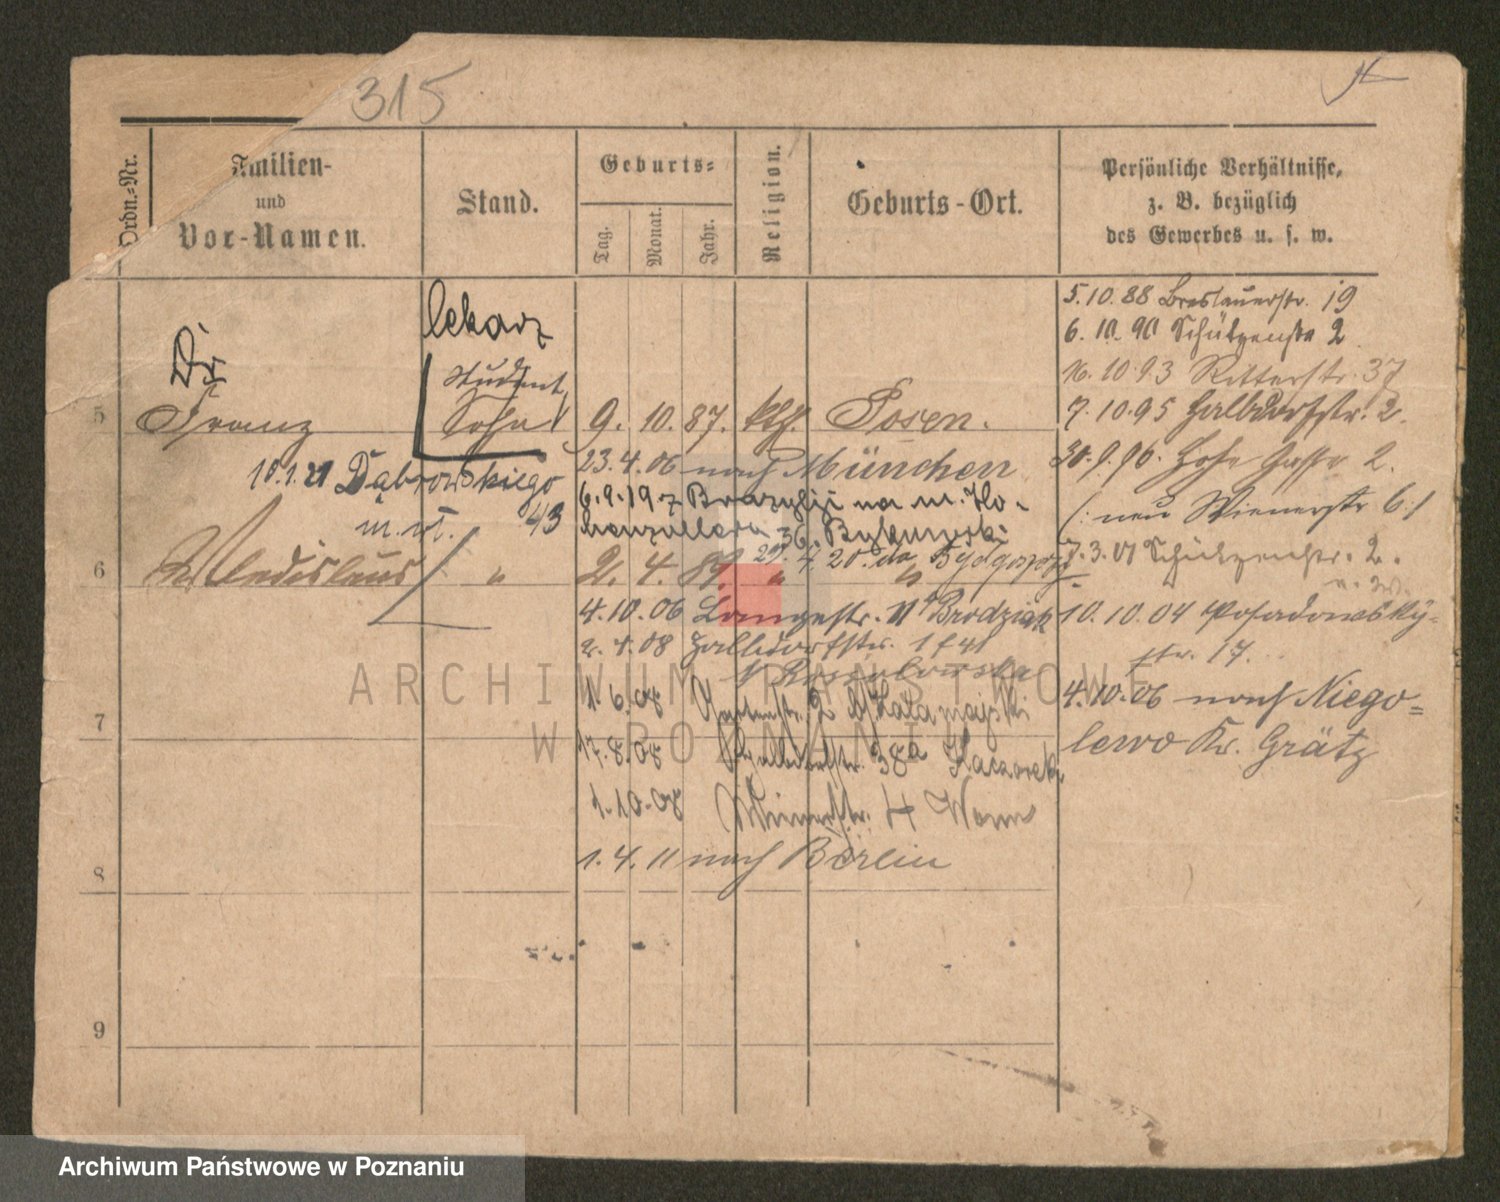 315
Ordn.-Nr.
Familien-
und
Vor-Namen.
Stand.
Geburts-
Tag.
Monat.
Jahr.
Religion.
Geburts-Ort.
Persönliche Verhältnisse,
z. B. bezüglich
des Gewerbes u. s. w.
lekarz
Dr
Student
5 Franz Sohn 9. 10. 87. kth. Posen.
23.4.06 nach München
10.1.21 Dąbrowskiego
m. 43
6.9.19 z Brazylji na m. Ho-
henzollern 36. Bykowski
29. 4. 20. do Bydgoszczy
6 Wladislaus " 2. 4. 89. " "
4.10.06 Langestr. 11 Brodziak
2.4.08 Halbdorfstr.
1.6.08 Gartenstr. 2
17.8.08 Halbdorfstr. 38a Kaczorek
7
1.10.08 4
1.4.11 nach Berlin
8
9
5.10.88 Breslauerstr. 19
6.10.90 Schützenstr 2
10.93 Ritterstr. 37
7.10.95 Halbdorfstr. 2.
30.9.96. Hohe Gasse 2.
(: neu Wienerstr 6:)
7.3.01 Schützenstr. 2.
10.10.04 Posadowsky-
str. 17.
4.10.06 nach Niego-
lewo Kr. Grätz
ARCHIWUM PAŃSTWOWE
W POZNANIU
Archiwum Państwowe w Poznaniu